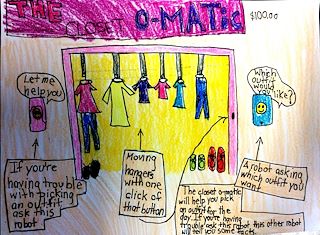 THE CLOSET O-MATIC
$100.00
Let me
help you
Which
outfit
would
you
like?
If you're
having trouble
with picking
an outfit
ask this
robot
Moving
hangers
with one
click of
that button
The closet o-matic
will help you pick
an outfit for the
day. If you're having
trouble ask this robot this other robot
will tell you some facts.
A robot asking
which outfit you
want